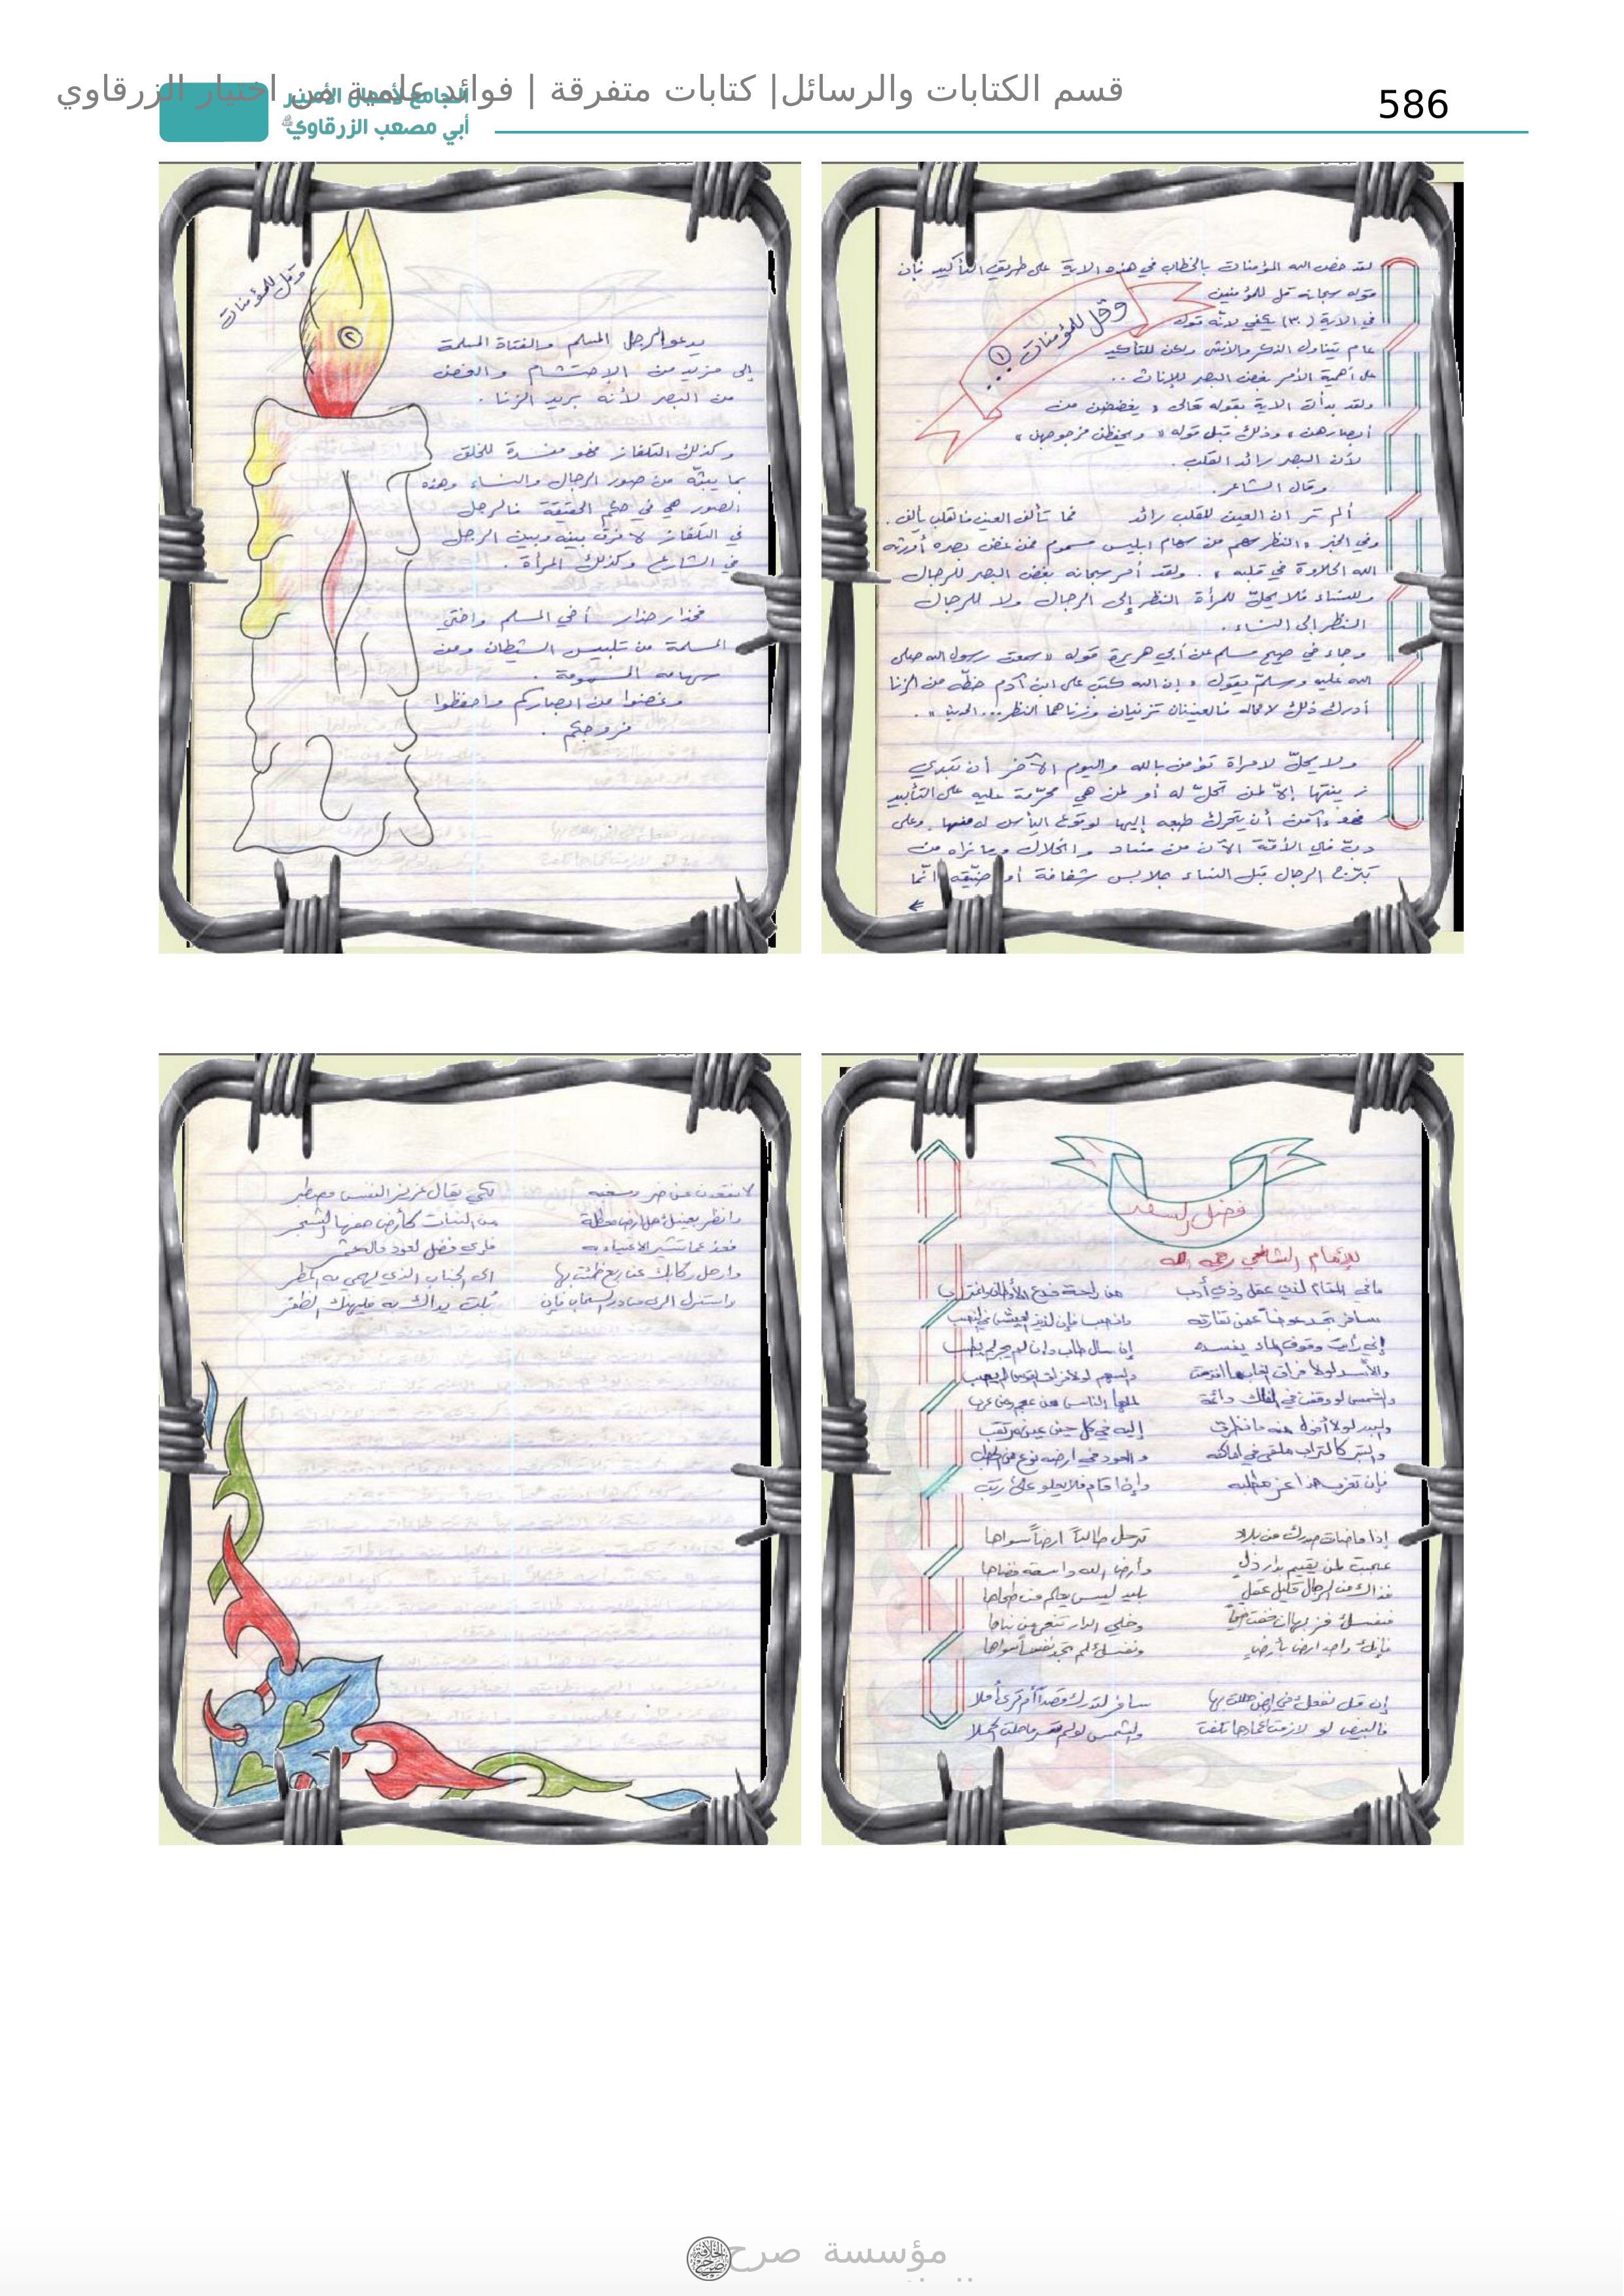 586
قسم الكتابات والرسائل| كتابات متفرقة | فوائد علمية من اختيار الزرقاوي
الجامع لأعمال الأمير
أبي مصعب الزرقاوي
لقد خص الله المؤمنات بالخطاب في هذه الاية على طريق التأكيد فإن
قوله سبحانه قل للمؤمنين
في الاية (٣٠) يكفي لأنه قول
عام يتناول الذكر والأنثى ولكن للتأكيد
على أهمية الأمر بغض البصر للإناث ..
وقل للمؤمنات ١ ...
ولقد بدأت الاية بقوله تعالى « يغضضن من
أبصارهن » وذلك قبل قوله « ويحفظن فروجهن »
لأن البصر رائد القلب .
وقال الشاعر .
ألم تر ان العين للقلب رائد فما تألف العين فالقلب يألف .
وفي الخبر « النظر سهم من سهام ابليس مسموم فمن غض بصره أورثه
الله الحلاوة في قلبه » . ولقد أمر سبحانه بغض البصر للرجال
وللنساء فلا يحلّ للمرأة النظر إلى الرجال ولا للرجال
النظر إلى النساء .
وجاء في صحيح مسلم عن أبي هريرة قوله « سمعت رسول الله صلى
الله عليه وسلم يقول « إن الله كتب على ابن آدم حظّه من الزنا
أدرك ذلك لا محالة فالعينان تزنيان وزناهما النظر... الحديث » .
ولا يحلّ لامرأة تؤمن بالله واليوم الآخر أن تبدي
زينتها إلاّ لمن تحلّ له أو لمن هي محرّمة عليه على التأبيد
فهو آمن أن يتحرك طبعه إليها لوقوع اليأس له منها . وعلى
دبّ في الأمّة الآن من فساد وانحلال وما نراه من
تبرّج الرجال قبل النساء بملابس شفافة أو ضيّقة انّما
وقل للمؤمنات
٢
يدعو الرجل المسلم والفتاة المسلمة
إلى مزيد من الإحتشام والغض
من البصر لأنه بريد الزنا .
وكذلك التلفاز فهو مفسدة للخلق
بما يبثّه من صور الرجال والنساء وهذه
الصور هي في حكم الحقيقة فالرجل
في التلفاز لا فرق بينه وبين الرجل
في الشارع وكذلك المرأة .
فحذار حذار أخي المسلم واختي
المسلمة من تلبيس الشيطان ومن
سهامه المسمومة .
وغضوا من ابصاركم واحفظوا
فروجكم .
فضل السفر
للإمام الشافعي رحمه الله
مافي المقام لذي عقل وذي أدب من راحة فدع الأوطان واغترب
سافر تجد عوضاً عمن تفارقه وانصب فإن لذيذ العيش في النصب
إني رأيت وقوف الماء يفسده إن سال طاب وان لم يجر لم يطب
والأسد لولا فراق الغاب ما افترست والسهم لولا فراق القوس لم يصب
والشمس لو وقفت في الفلك دائمة لملها الناس من عجم ومن عرب
والبدر لولا أفول منه ما نظرت إليه في كل حين عين مرتقب
والتبر كالتراب ملقى في اماكنه والعود في ارضه نوع من الحطب
فإن تغرب هذا عز مطلبه وإن اقام فلا يعلو على رتب
إذا ما ضاق صدرك من بلاد ترحل طالباً ارضاً سواها
عجبت لمن يقيم بدار ذل وأرض الله واسعة فضاها
فذاك من الرجال قليل عقل بليد ليس يعلم من طحاها
فنفسك فز بها ان خفت ضيماً وخلي الدار تنعي من بناها
فإنك واجد ارض بأرض ونفسك لم تجد نفساً سواها
والشمس
لا تقعدن على ضر ومسغبة لكي يقال عزيز النفس مصطبر
وانظر بعينك هل ارض معطلة من النبات كأرض حفها الشجر
فعد عما تشير الاغبياء به فأي فضل لعود ماله ثمر
وارحل ركابك عن ربع ظمئت بها الى الجناب الذي يهمي به المطر
واستنزل الري من در السحاب فإن بُلت يداك به فليهنك الظفر
مؤسسة صرح